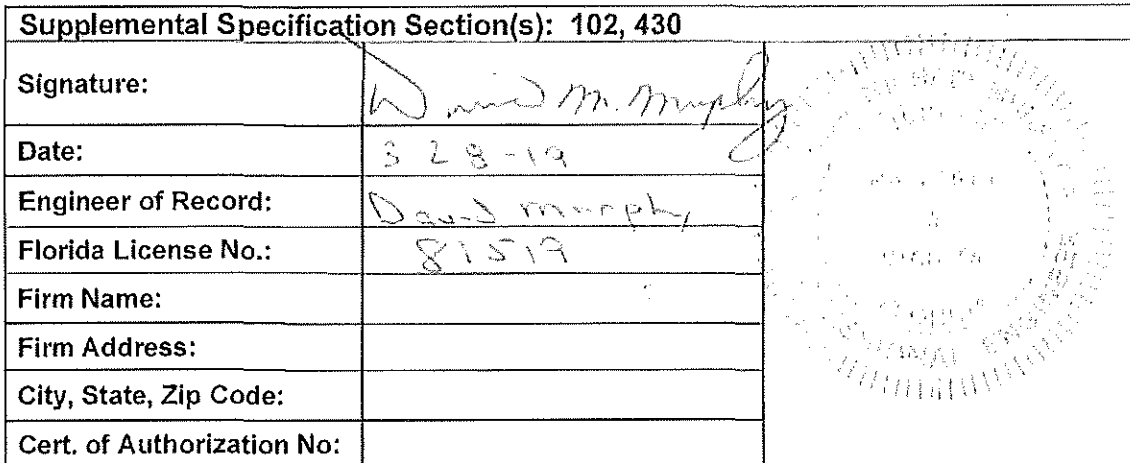 Supplemental Specification Section(s): 102, 430
Signature: David M. Murphy
Date: 3 28-19
Engineer of Record: David Murphy
Florida License No.: 81519
Firm Name:
Firm Address:
City, State, Zip Code:
Cert. of Authorization No: